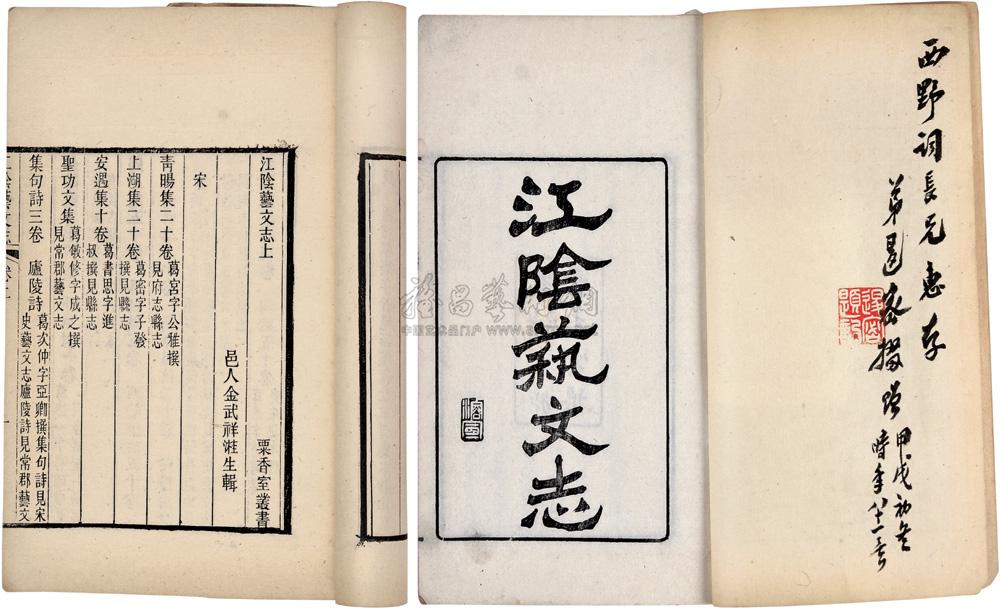 江陰藝文志上 粟香室叢書
邑人金武祥溎生輯
宋
青暘集二十卷 葛宮字公雅撰
見府志縣志
上湖集二十卷 葛密字子發
撰見縣志
安遇集十卷 葛書思字進
叔撰見縣志
聖功文集 葛敏修字成之撰
見常郡藝文志
集句詩三卷 廬陵詩 葛次仲字亞卿撰集句詩見宋
史藝文志廬陵詩見常郡藝文
江陰藝文志
江陰蓺文志
西野詞長兄惠存
弟退密
甲戌初冬
時年八十一歲